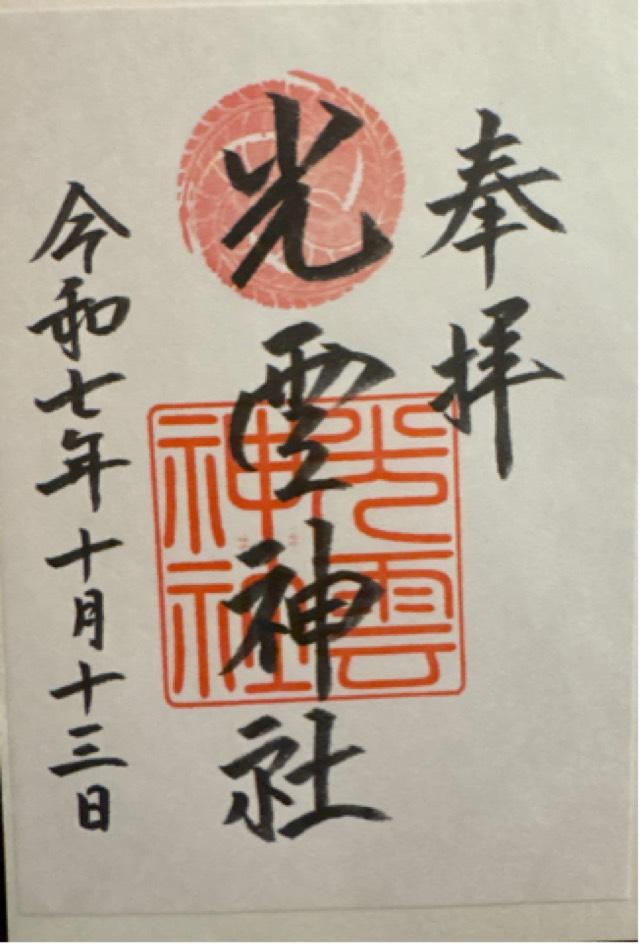 奉拝
光雲神社
光雲神社
令和七年十月十三日